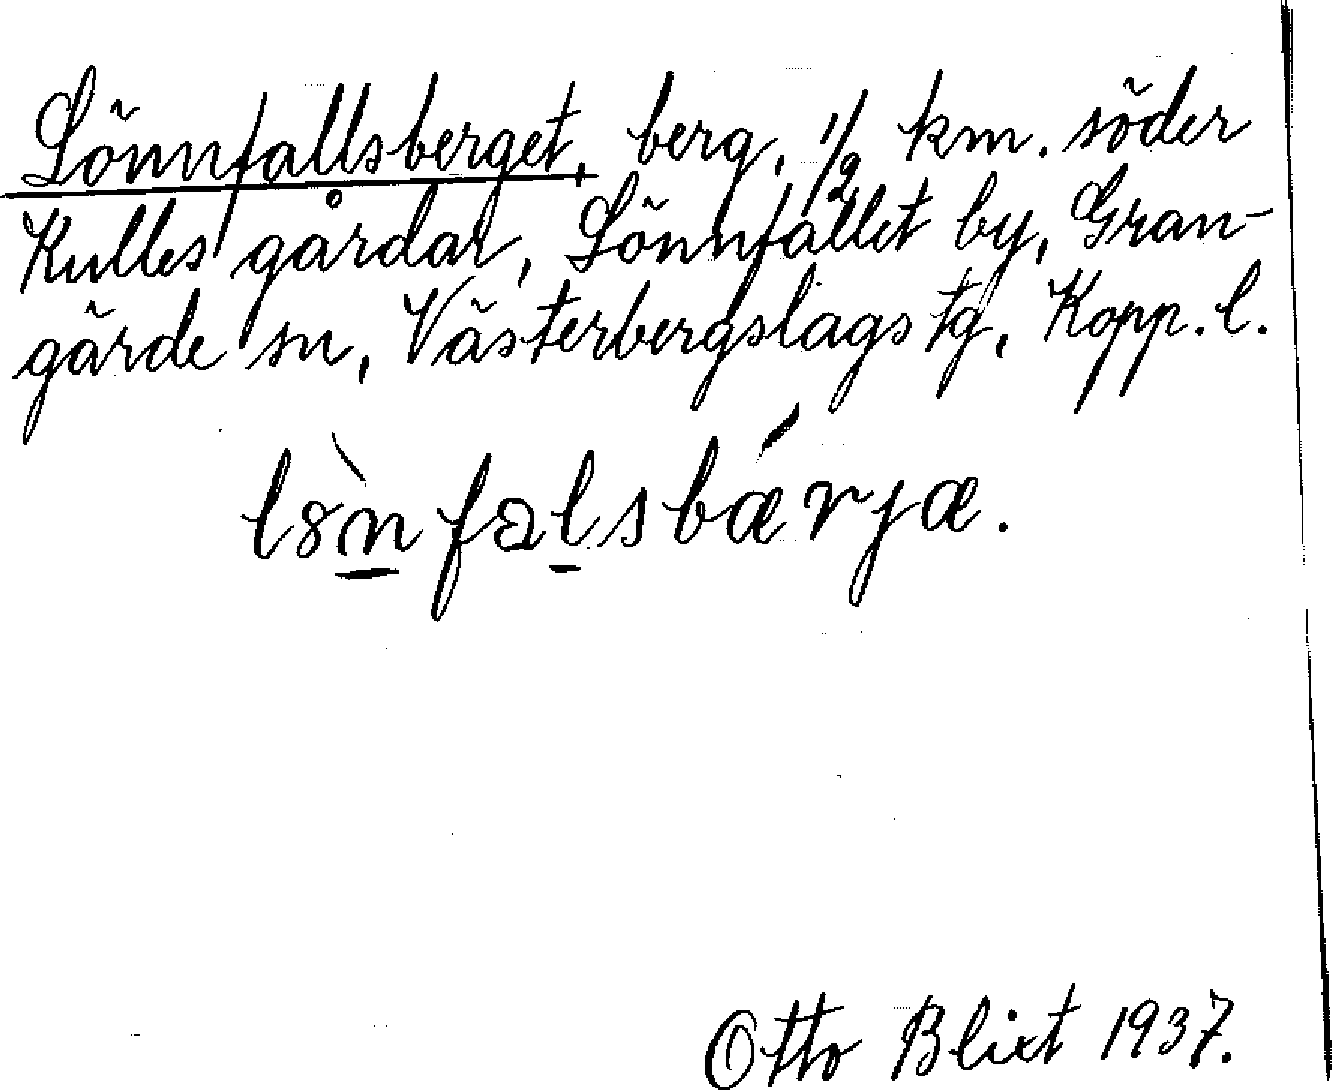 Lönnfallsberget, berg, 1/2 km. söder
Kulles gårdar, Lönnfallet by, Gran-
gärde sn, Västerbergslags tg, Kopp. l.
lo̊̀nfalsbǽrjæ.
Otto Blixt 1937.